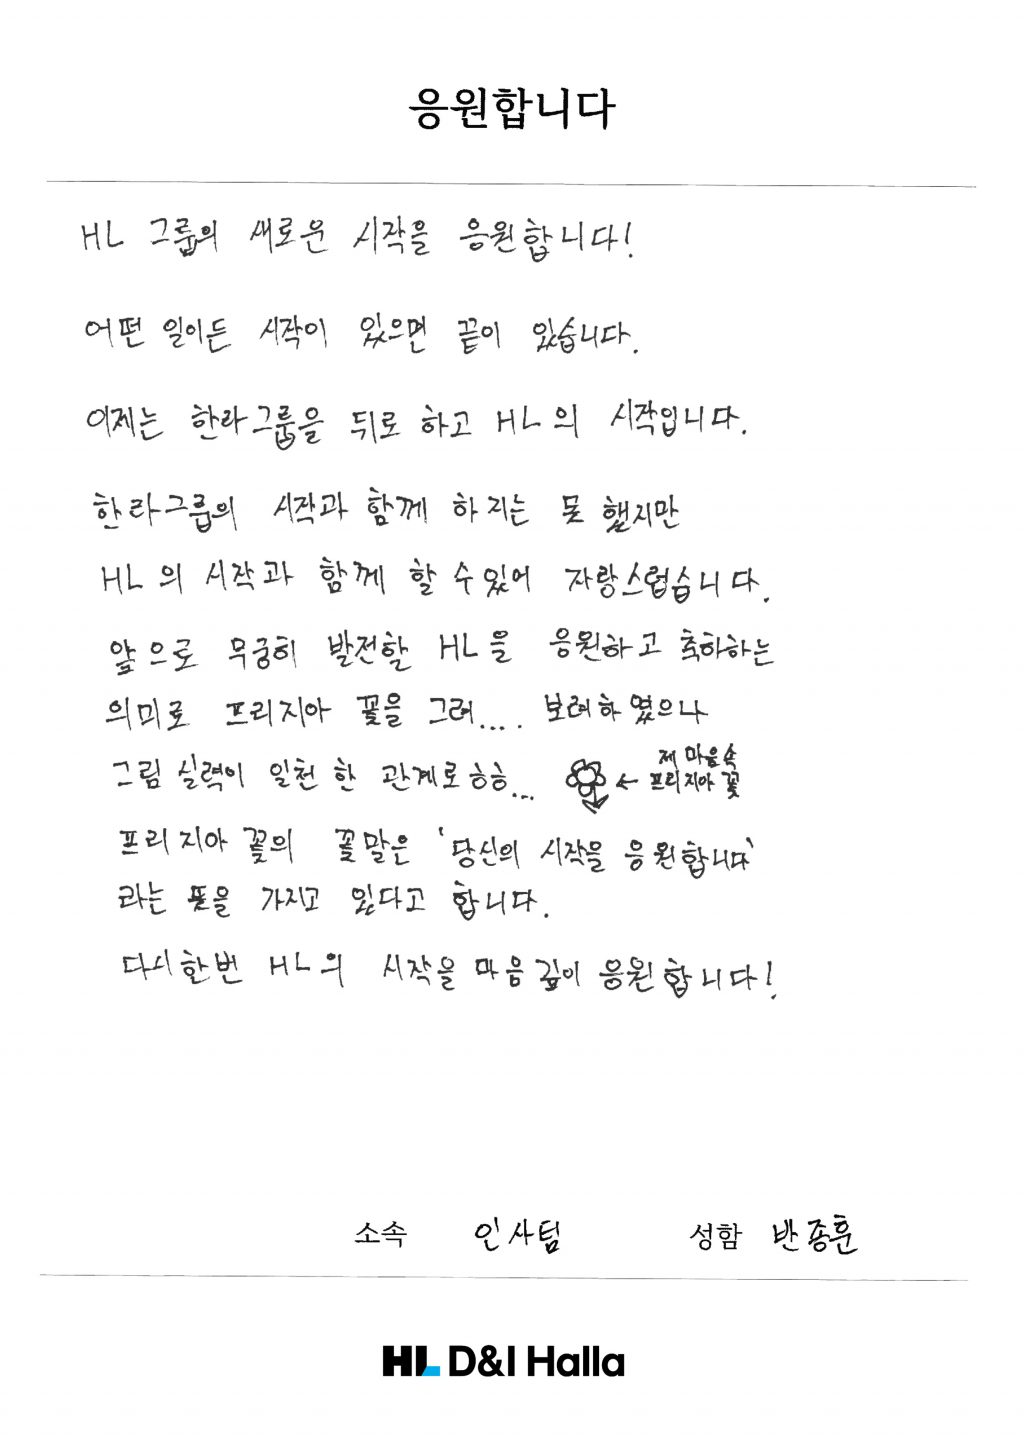 응원합니다
HL 그룹의 새로운 시작을 응원합니다!
어떤 일이든 시작이 있으면 끝이 있습니다.
이제는 한라그룹을 뒤로 하고 HL의 시작입니다.
한라그룹의 시작과 함께 하지는 못 했지만
HL의 시작과 함께 할 수 있어 자랑스럽습니다.
앞으로 무궁히 발전할 HL을 응원하고 축하하는
의미로 프리지아 꽃을 그려.... 보려하였으나
그림 실력이 일천 한 관계로 하하...
← 제 마음속
프리지아 꽃
프리지아 꽃의 꽃말은 '당신의 시작을 응원합니다'
라는 뜻을 가지고 있다고 합니다.
다시한번 HL의 시작을 마음깊이 응원합니다!
소속 인사팀 성함 반종훈
HL D&I Halla